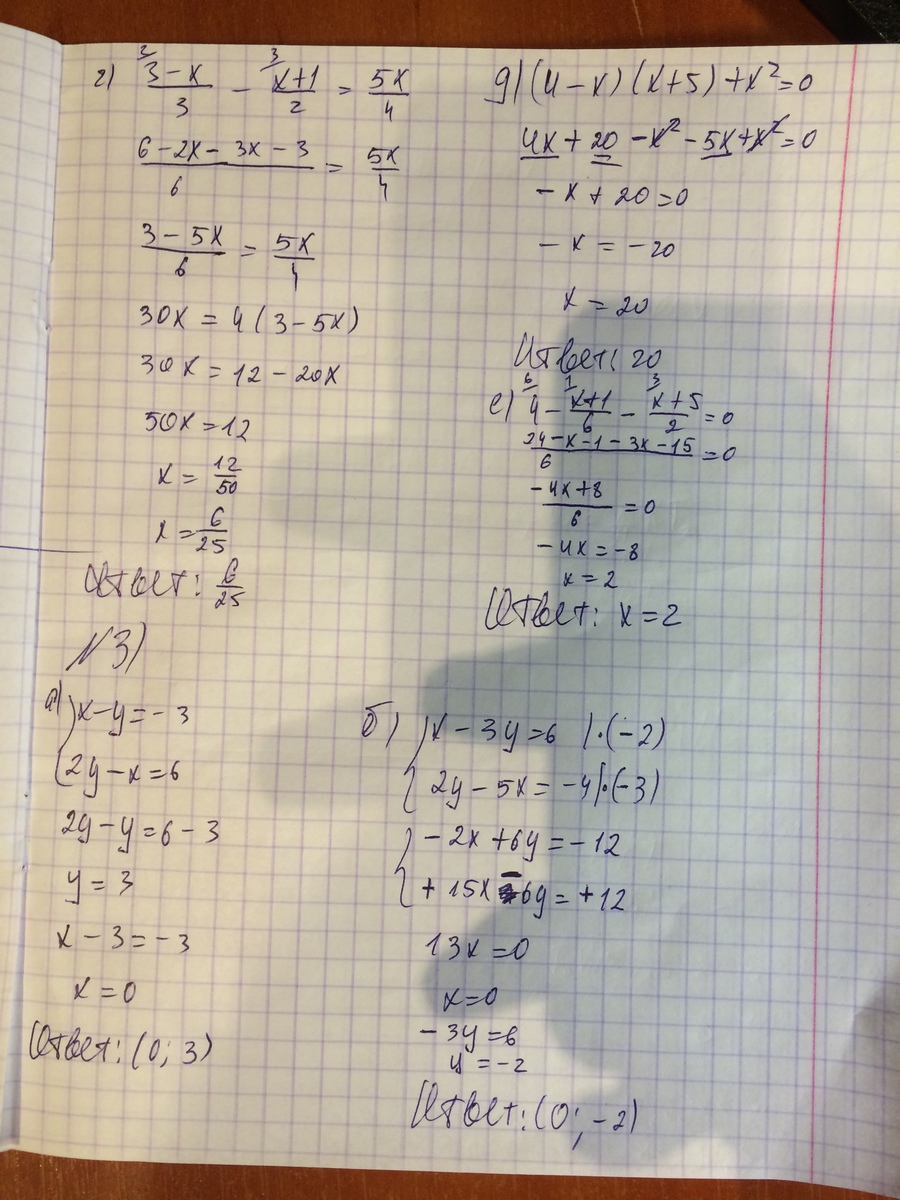 г) (3-x)/3 - (x+1)/2 = 5x/4
(6-2x-3x-3)/6 = 5x/4
(3-5x)/6 = 5x/4
30x = 4(3-5x)
30x = 12-20x
50x = 12
x = 12/50
x = 6/25
Ответ: 6/25
д) (4-x)(x+5)+x²=0
4x+20-x²-5x+x²=0
-x+20=0
-x=-20
x=20
Ответ: 20
е) 4 - (x+1)/6 - (x+5)/2 = 0
(24-x-1-3x-15)/6 = 0
(-4x+8)/6 = 0
-4x=-8
x=2
Ответ: x=2
N3)
а) { x-y=-3
2y-x=6
2y-y=6-3
y=3
x-3=-3
x=0
Ответ: (0; 3)
б) { x-3y=6 |·(-2)
2y-5x=-4 |·(-3)
{ -2x+6y=-12
+15x-6y=+12
13x=0
x=0
-3y=6
y=-2
Ответ: (0; -2)